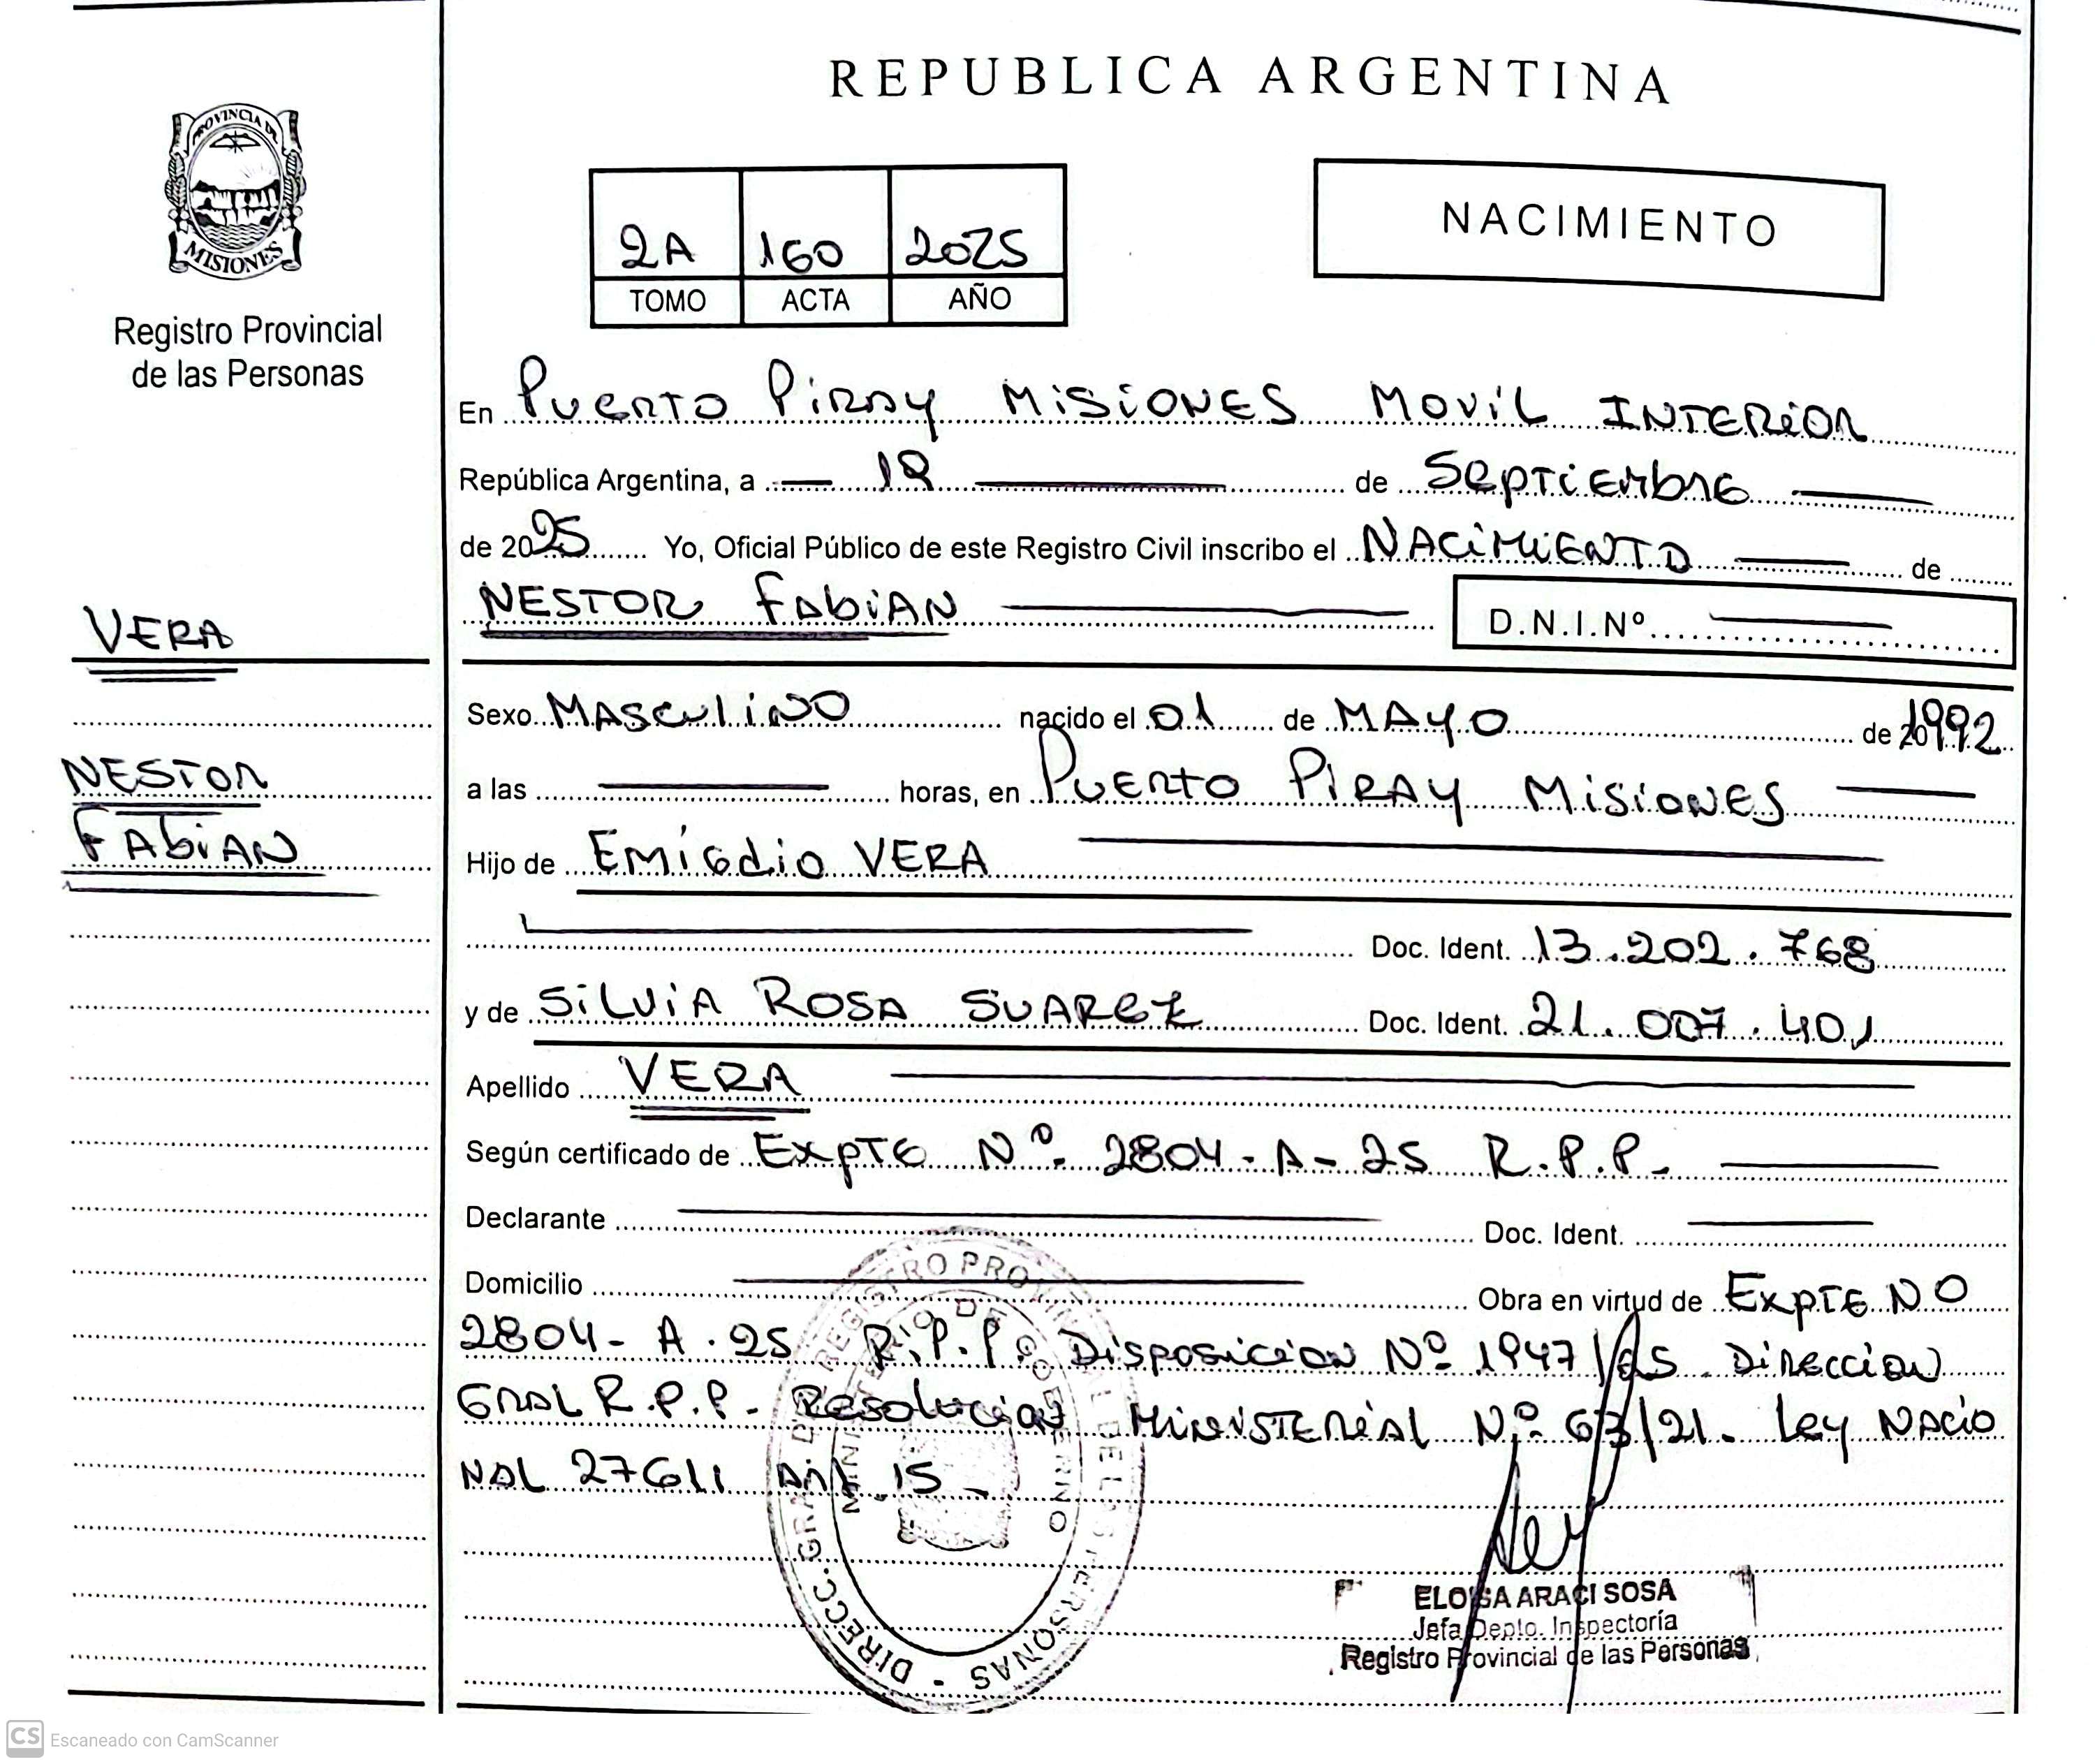 REPUBLICA ARGENTINA
PROVINCIA DE
MISIONES
Registro Provincial
de las Personas
2A 160 2025
TOMO ACTA AÑO
NACIMIENTO
En Puerto Piray Misiones Movil Interior
República Argentina, a 18 de Septiembre
de 2025 Yo, Oficial Público de este Registro Civil inscribo el NACIMIENTO de
NESTOR FabiAN D.N.I.Nº
VERA
NESTOR
FAbiAN
Sexo MASCULINO nacido el 01 de MAYO de 1992
a las horas, en Puerto Piray Misiones
Hijo de Emigdio VERA
Doc. Ident. 13.202.768
y de Silvia Rosa Suarez Doc. Ident. 21.007.401
Apellido VERA
Según certificado de Expte Nº 2804-A-25 R.P.P.
Declarante Doc. Ident.
Domicilio Obra en virtud de Expte NO
2804-A.25 R.P.P. Disposicion Nº 1947/25 Direccion
Gral R.P.P. Resolucion Ministerial Nº 63/21. Ley Nacio
nal 27611 Art. 15
DIRECC. GRAL. DE REGISTRO PROVINCIAL DE LAS PERSONAS -
MINISTERIO DE GOBIERNO
ELOISA ARACI SOSA
Jefa Depto. Inspectoría
Registro Provincial de las Personas
CS Escaneado con CamScanner